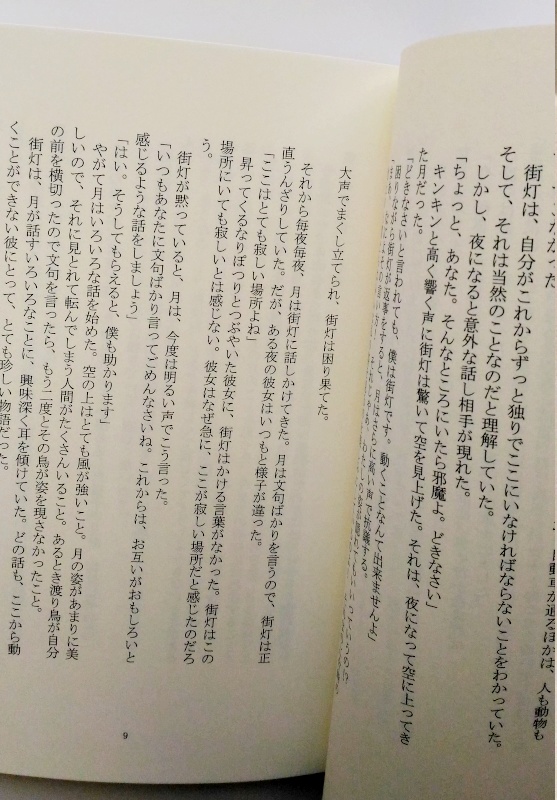 自動車が通るほかは、人も動物も
なかった
街灯は、自分がこれからずっと独りでここにいなければならないことをわかっていた。
そして、それは当然のことなのだと理解していた。
しかし、夜になると意外な話し相手が現れた。
「ちょっと、あなた。そんなところにいたら邪魔よ。どきなさい」
キンキンと高く響く声に街灯は驚いて空を見上げた。それは、夜になって空に上ってき
た月だった。
「どきなさいと言われても、僕は街灯です。動くことなんて出来ませんよ」
困りながら街灯が返事をすると、月はさらに高い声で抗議する。
大声でまくし立てられ、街灯は困り果てた。
それから毎夜毎夜、月は街灯に話しかけてきた。月は文句ばかりを言うので、街灯は正
直うんざりしていた。だが、ある夜の彼女はいつもと様子が違った。
「ここはとても寂しい場所よね」
昇ってくるなりぽつりとつぶやいた彼女に、街灯はかける言葉がなかった。街灯はこの
場所にいても寂しいとは感じない。彼女はなぜ急に、ここが寂しい場所だと感じたのだろ
う。
街灯が黙っていると、月は、今度は明るい声でこう言った。
「いつもあなたに文句ばかり言ってごめんなさいね。これからは、お互いがおもしろいと
感じるような話をしましょう」
「はい。そうしてもらえると、僕も助かります」
やがて月はいろいろな話を始めた。空の上はとても風が強いこと。月の姿があまりに美
しいので、それに見とれて転んでしまう人間がたくさんいること。あるとき渡り鳥が自分
の前を横切ったので文句を言ったら、もう二度とその鳥が姿を現さなかったこと。
街灯は、月が話すいろいろなことに、興味深く耳を傾けていた。どの話も、ここから動
くことができない彼にとって、とても珍しい物語だった。
9